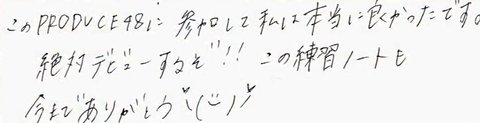 このPRODUCE48に 参加して私は本当に良かったです。
絶対デビューするぞ!! この練習ノートも
今までありがとう